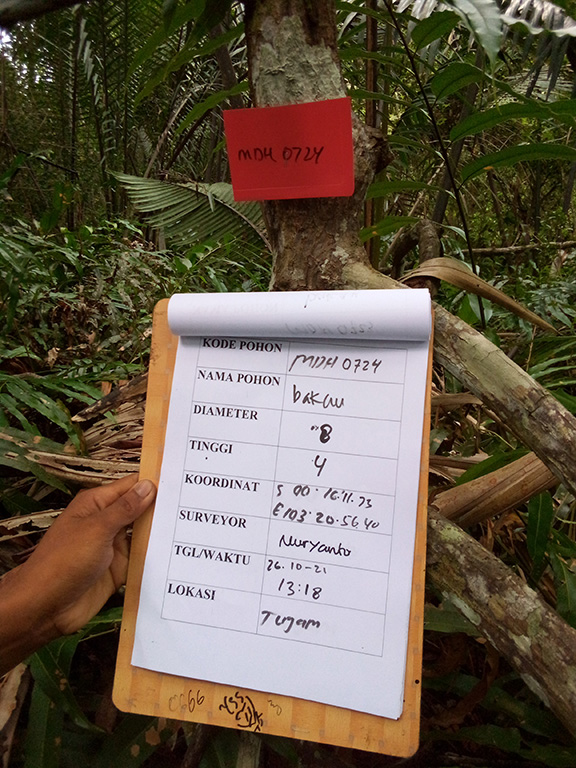 MDH 0724
KODE POHON MDH 0724
NAMA POHON bakau
DIAMETER 8
TINGGI 4
KOORDINAT S 00.16.11.73
E103.20.56.40
SURVEYOR Nuryanto
TGL/WAKTU 26.10-21
13:18
LOKASI Tugam